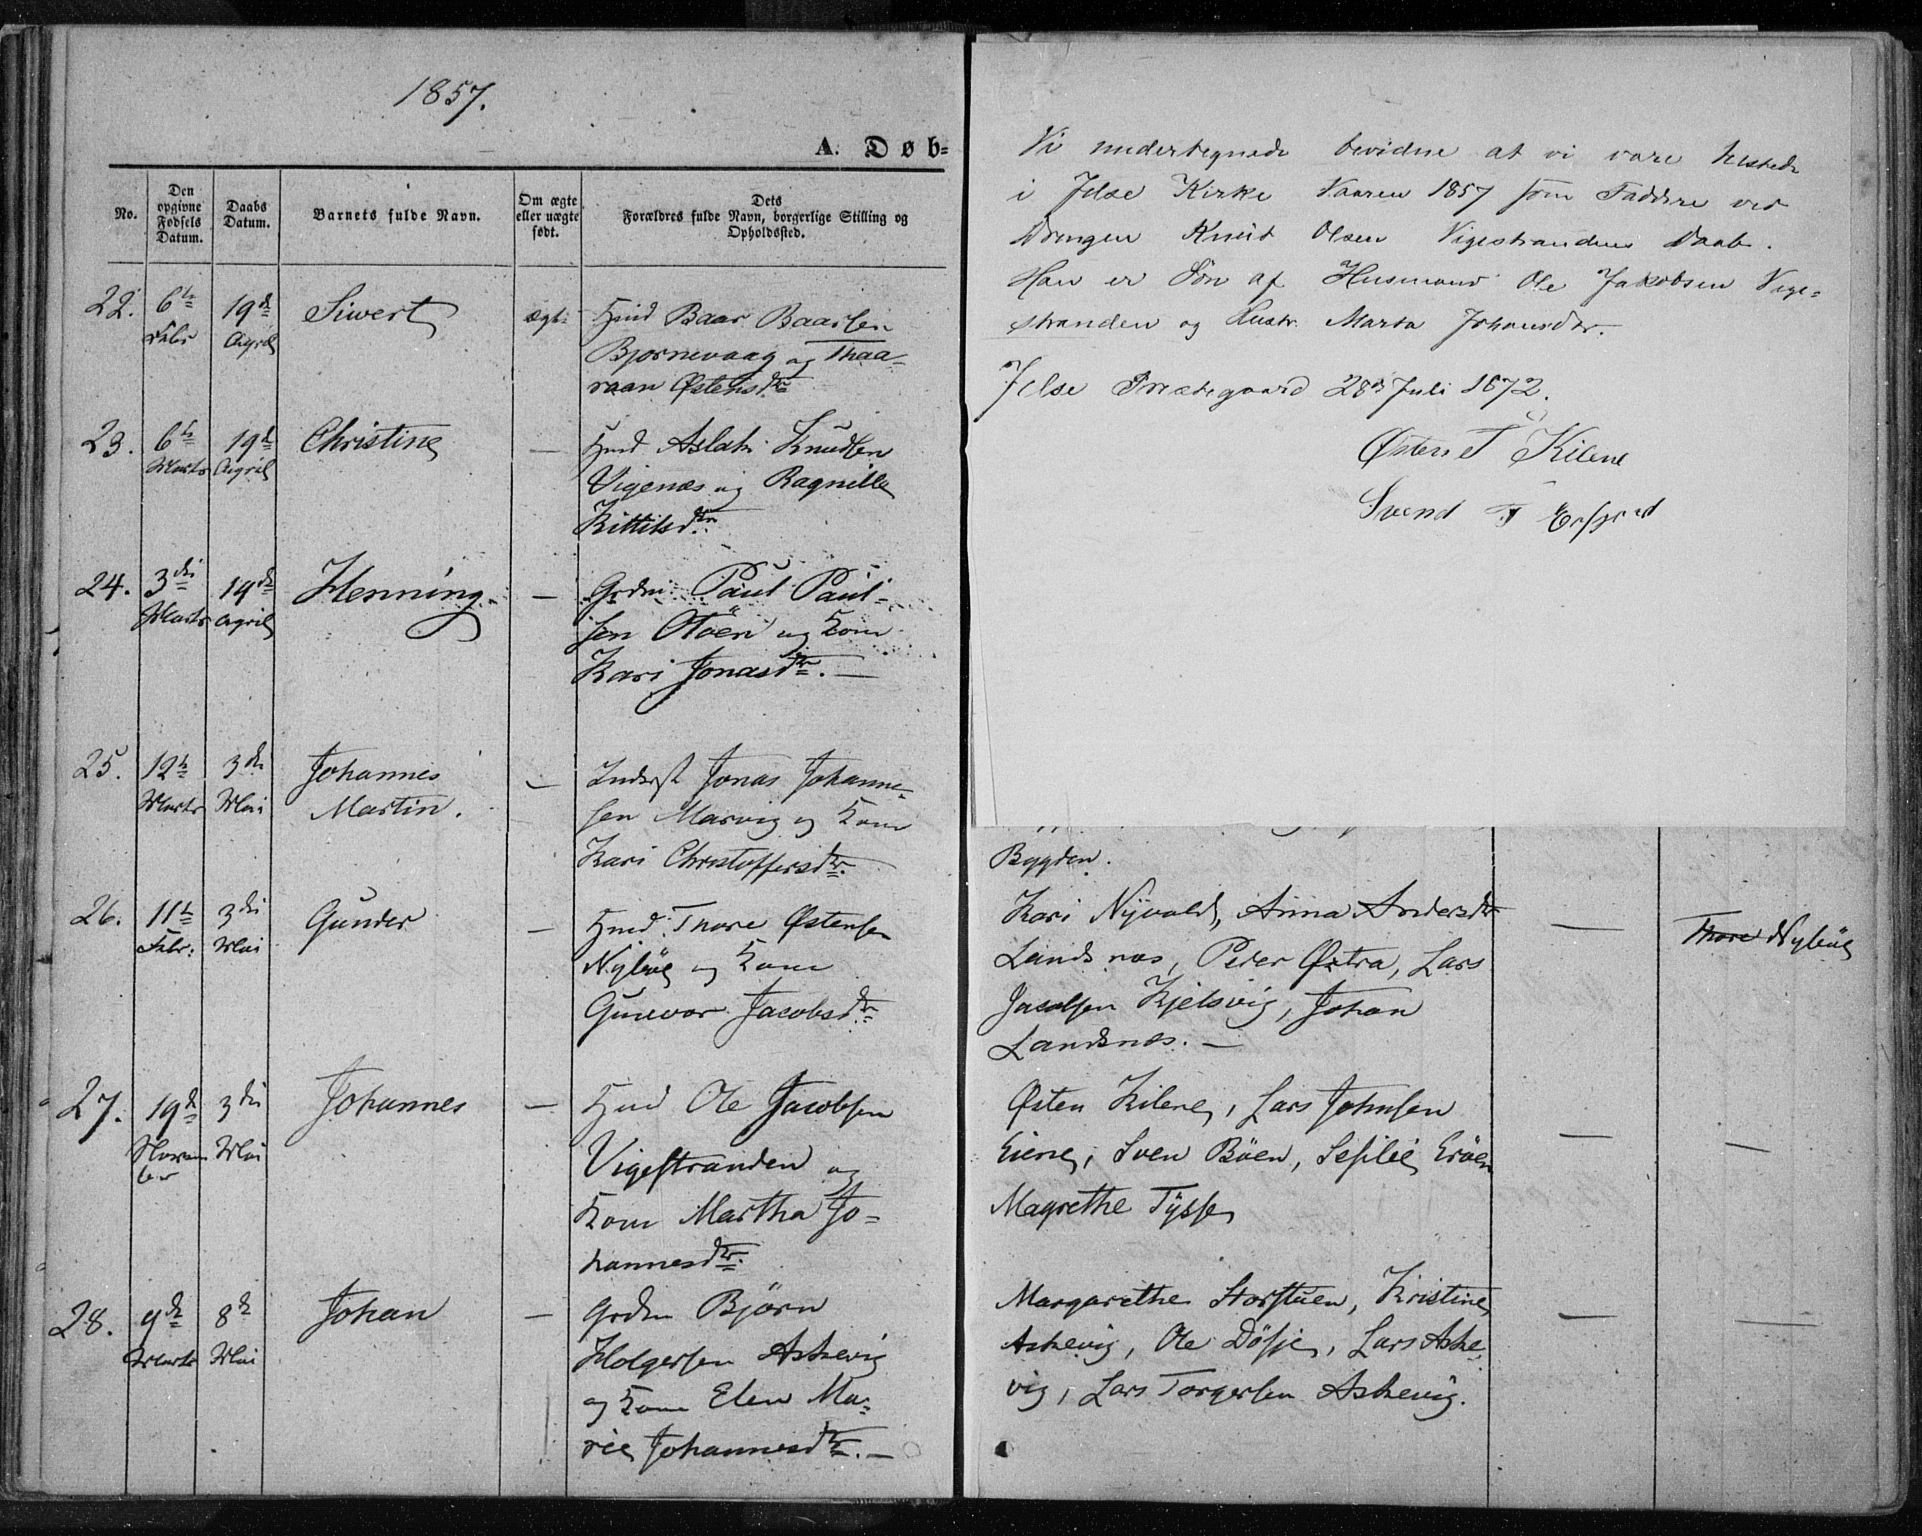 1857.
A. Døb-
No.
Den opgivne Fødsels Datum.
Daabs Datum.
Barnets fulde Navn.
Om ægte eller uægte født.
Dets Forældres fulde Navn, borgerlige Stilling og Opholdssted.
22. 6te Febr 19de April Siwert ægt. Hmd Baar Baarsen
Bjørnevaag og Thaa-
raan Østensdtr
23. 6te Marts 19de April Christine — Hmd Aslak Knudsen
Vigenæs og Ragnille
Kittilsdtr
24. 3die Marts 19de April Henning — Grdm. Paul Paul-
sen Otøen og Kone
Kari Jonasdtr. —
25. 12te Marts 3die Mai Johannes — Inderst Jonas Johanne-
Martin. sen Marvig og Kone
Kari Christoffersdtr.
26. 11te Febr: 3die Mai Gunder — Hmd. Thore Østensen
Nybøe og Kone
Gunvor Jacobsdtr
27. 19de Novem ber 3die Mai Johannes — Hmd Ole Jacobsen
Vigestranden og
Kone Martha Jo-
hannesdtr.
28. 9de Marts 8de Mai Johan — Grdm Bjørn
Holgersen Askevig
og Kone Elen Ma-
rie Johannesdtr. —
Vi undertegnede bevidne at vi vare tilstede
i Jelse Kirke Vaaren 1857 som Faddere ved
Drengen Knut Olsen Vigestrandens Daab.
Han er Søn af Husmand Ole Jakobsen Vige-
stranden og Hustr. Marta Johansdtr.
Jelse Præstegaard 28de Juli 1872.
Østen T Kilene
Svend T
Bygden.
Kari Nyvold, Anna Andersdtr — Thore Nybøe
Landsnæs, Peder Østra, Lars
Jacobsen Kjelsvig, Johan
Landsnæs. —
Østen Kilene, Lars Johnsen — —
Eiene, Sven Bøen, Sesilie Erøen
Magrethe Tysse
Margarethe Storstuen, Kristine — —
Askevig, Ole Døsje, Lars Aske-
vig, Lars Torgersen Askevig.